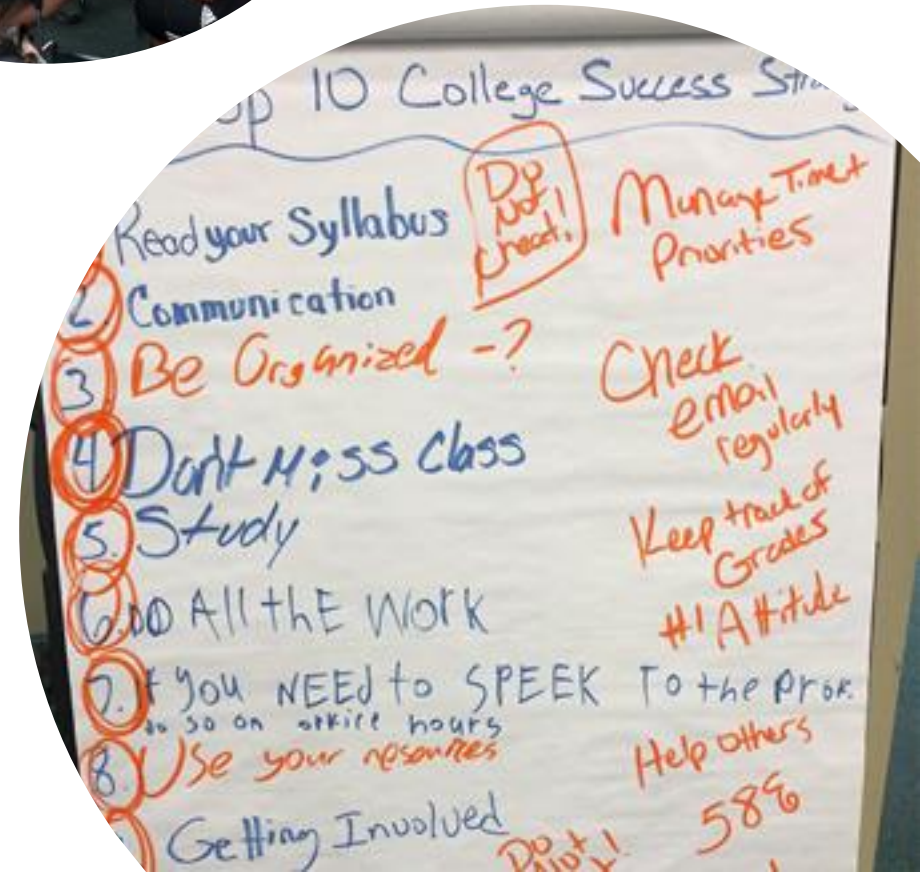 10 College Success
Read your Syllabus
Do
Not!
Cheat!
Manage Time +
Priorities
2. Communication
3 Be Organized -?
Check
email
regularly
4 Don't Miss Class
5. Study
Keep track of
Grades
6. DO All thE Work
#1 Attitude
7. If you NEEd to SPEEK To the Prof.
do so on office hours
8. Use your resources
Help others
Getting Involved
588
Do
Not!